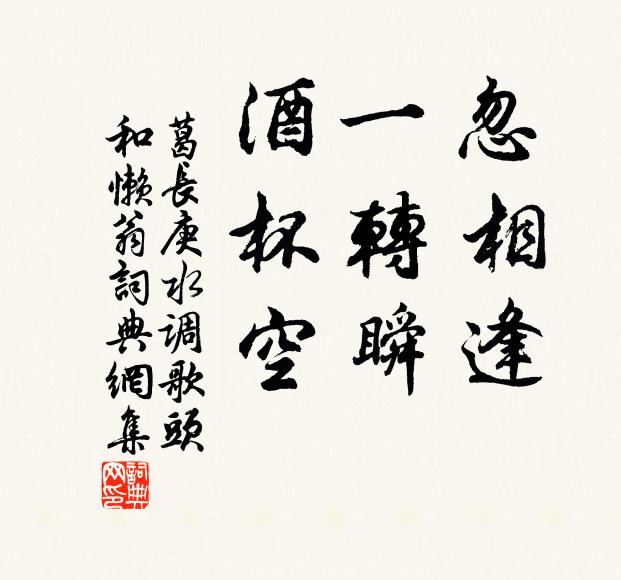 忽相逢
一轉瞬
酒杯空
葛長庚水调歌頭
和懶翁詞典網集
詞典网印